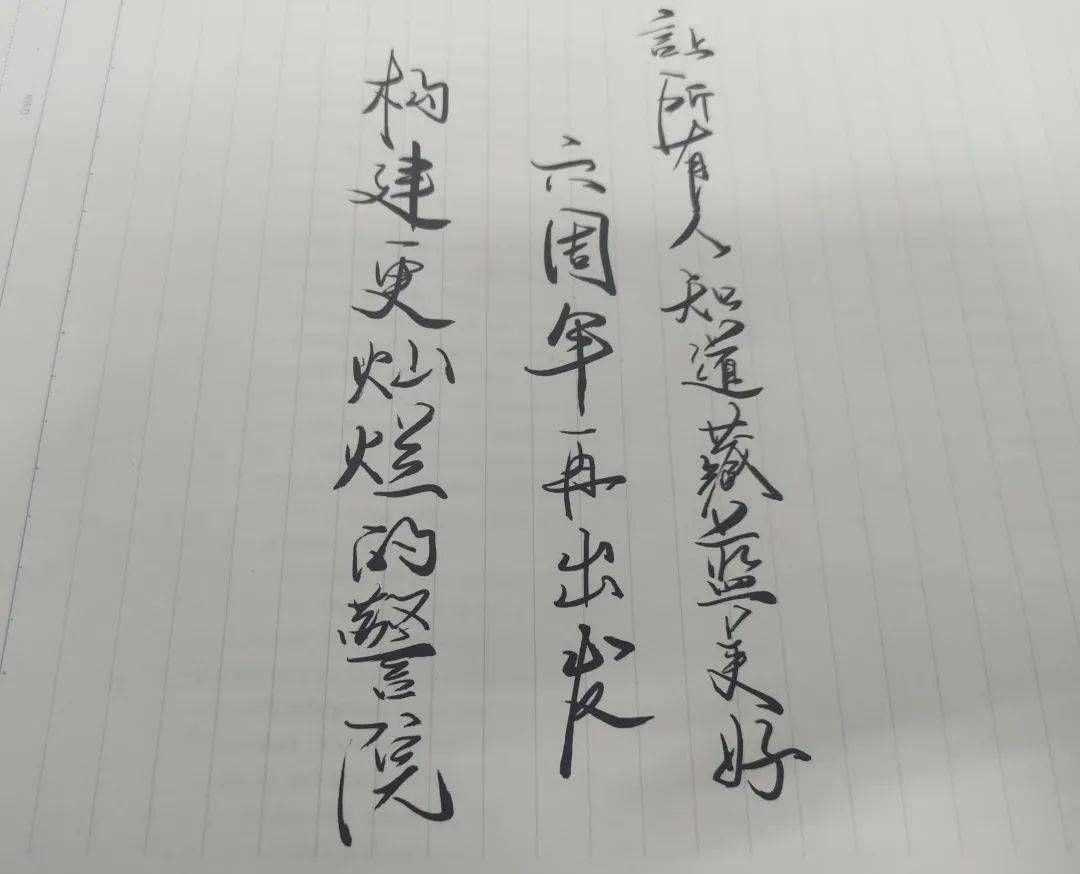 让所有人知道藏蓝更好
六周年再出发
构建更灿烂的警院